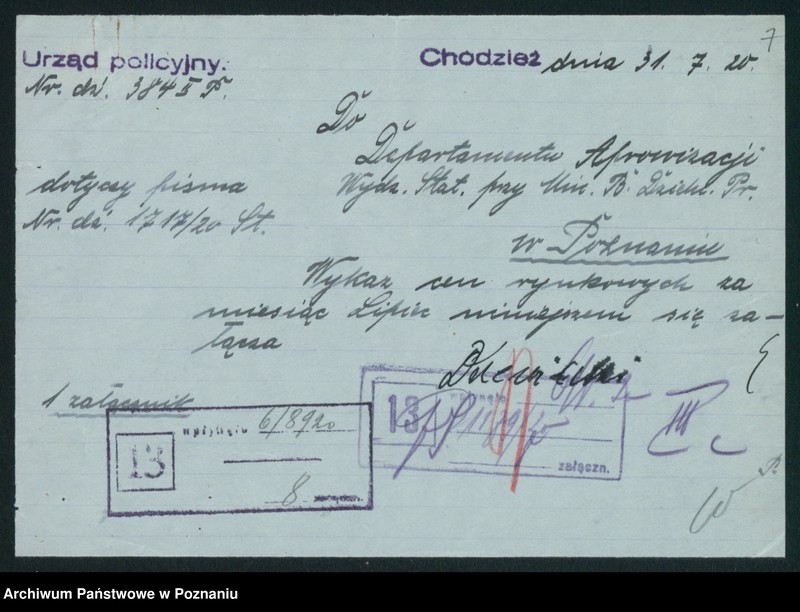 7
Urząd policyjny.
Chodzież dnia 31. 7. 20.
Nr. dz. 384 II P.
Do
Departamentu Aprowizacji
Wydz. Stat. przy Min. B. Dzieln. Pr.
dotyczy pisma
Nr. dz. 1717/20 St.
w Poznaniu
Wykaz cen rynkowych za
miesiąc Lipiec niniejszem się za-
łącza
1 załącznik
13
wpłynęło 6/8 920
8
13
wpłynęło
załączn.
III
Archiwum Państwowe w Poznaniu